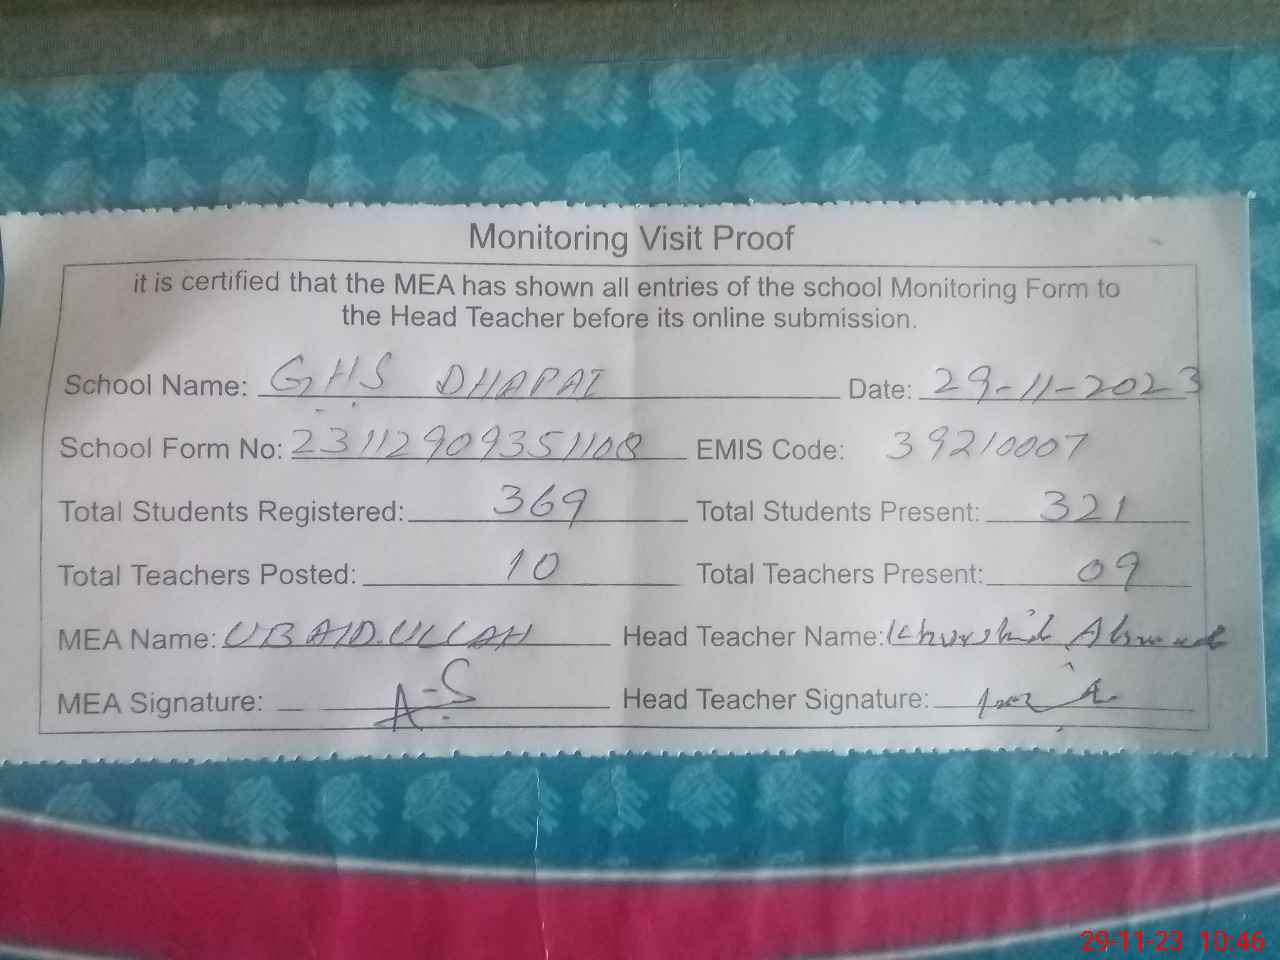 Monitoring Visit Proof
it is certified that the MEA has shown all entries of the school Monitoring Form to
the Head Teacher before its online submission.
School Name: GHS DHAPAI Date: 29-11-2023
School Form No: 23112909351108 EMIS Code: 39210007
Total Students Registered: 369 Total Students Present: 321
Total Teachers Posted: 10 Total Teachers Present: 09
MEA Name: UBAID.ULLAH Head Teacher Name: Khurshid Ahmad
MEA Signature: Head Teacher Signature:
29-11-23 10:46